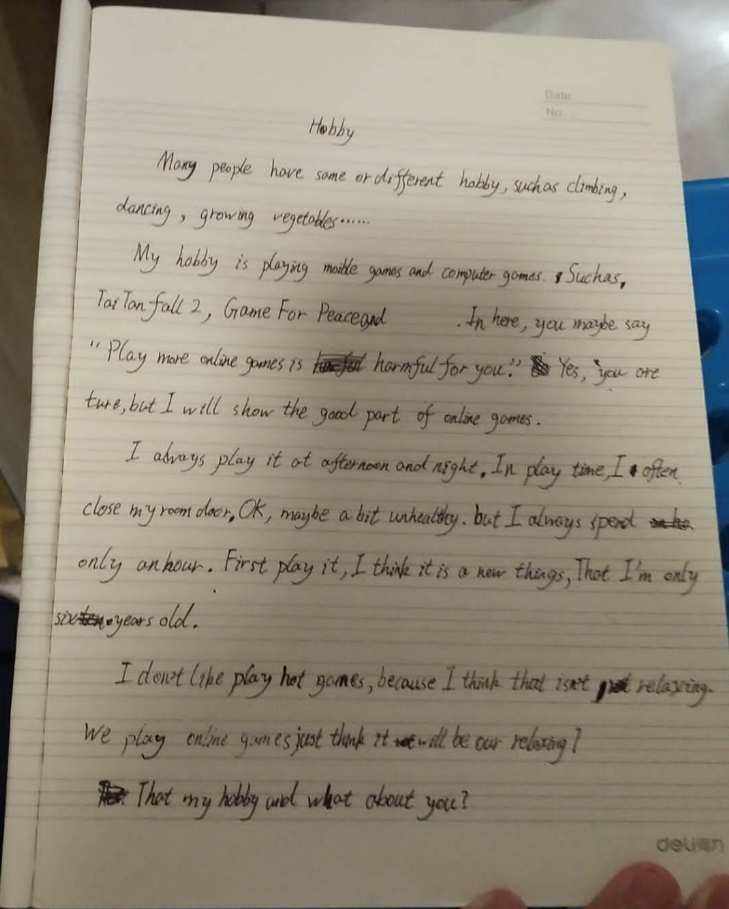 Date
No.
Hobby
Many people have same or different hobby, suchas climbing,
dancing, growing vegetables......
My hobby is playing moible games and computer games. Suchas,
TaiTanfall 2, Game For Peaceand . In here, you maybe say
"Play more online games is harmful for you." Yes, you are
ture, but I will show the good part of online games.
I always play it at afternoon and night. In play time, I often
close my room door, OK, maybe a bit unhealthy. but I always spend
only anhour. First play it, I think it is a new things, That I'm only
six years old.
I don't like play hot games, because I think that isn't relaxing.
We play online games just think it will be our relaxing!
That my hobby and what about you?
deli